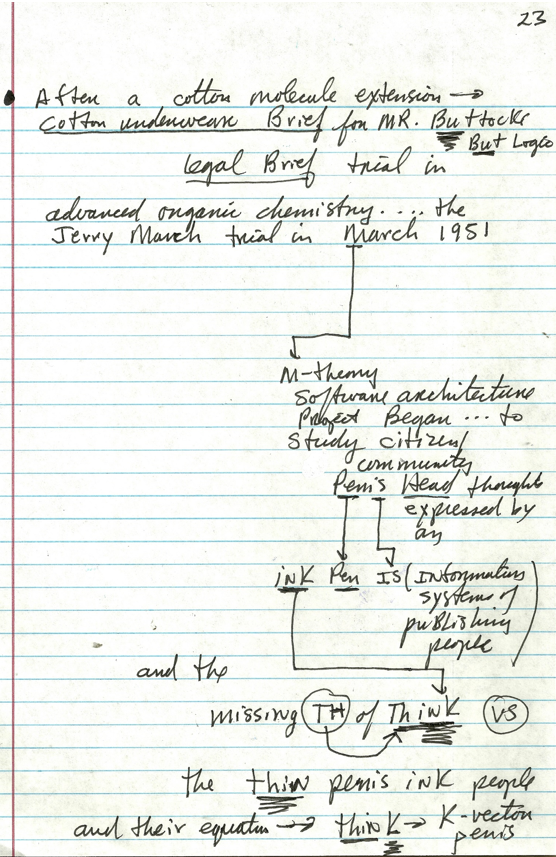 23
After a cotton molecule extension →
cotton underwear Brief for MR. Buttocks
But Logic
legal Brief trial in
advanced organic chemistry.... the
Jerry March trial in March 1951
M-theory
software architecture
Project Began ... to
study citizen/
community
Penis Head thoughts
expressed by
an
inK Pen IS (Information
systems of
publishing
people)
and the
missing TH of ThinK VS
the thin penis inK people
and their equation → thinK → K-vector
penis